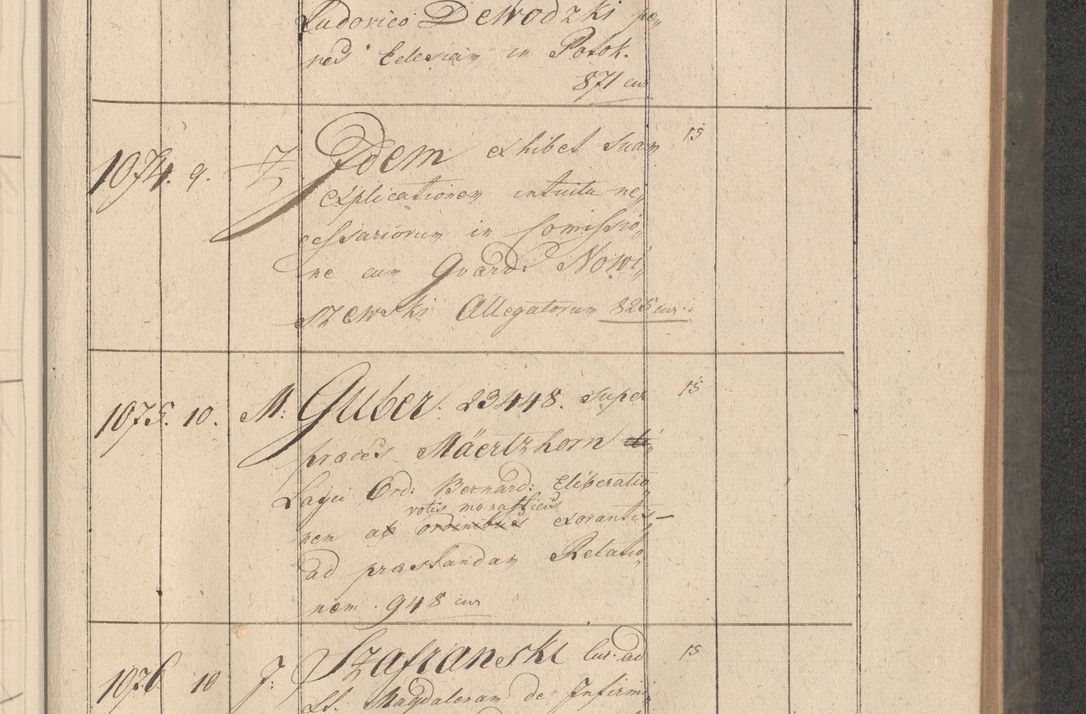 Ludovico Dewodzki pe„
nes Eclesiam in Potok.
871 cur
1074. 9. Z Idem exhibet suam 15
explicationem intuitu ne„
cessariorum in Comissio„
ne cum Gvard: Nowi„
szewski Allegatorum 825 cur.
1075. 10. M. Guber. 23448. super 15
preces Mäertzhorn
Layci Ord: Bernard: Eliberatio„
votis monasticis
nem ab ordinibus exorantis –
ad præstandam Relatio„
nem. 948 cur
1076 10 J: Szafranski Cur. ad 15
SS. Magdalenam de Infirmi„